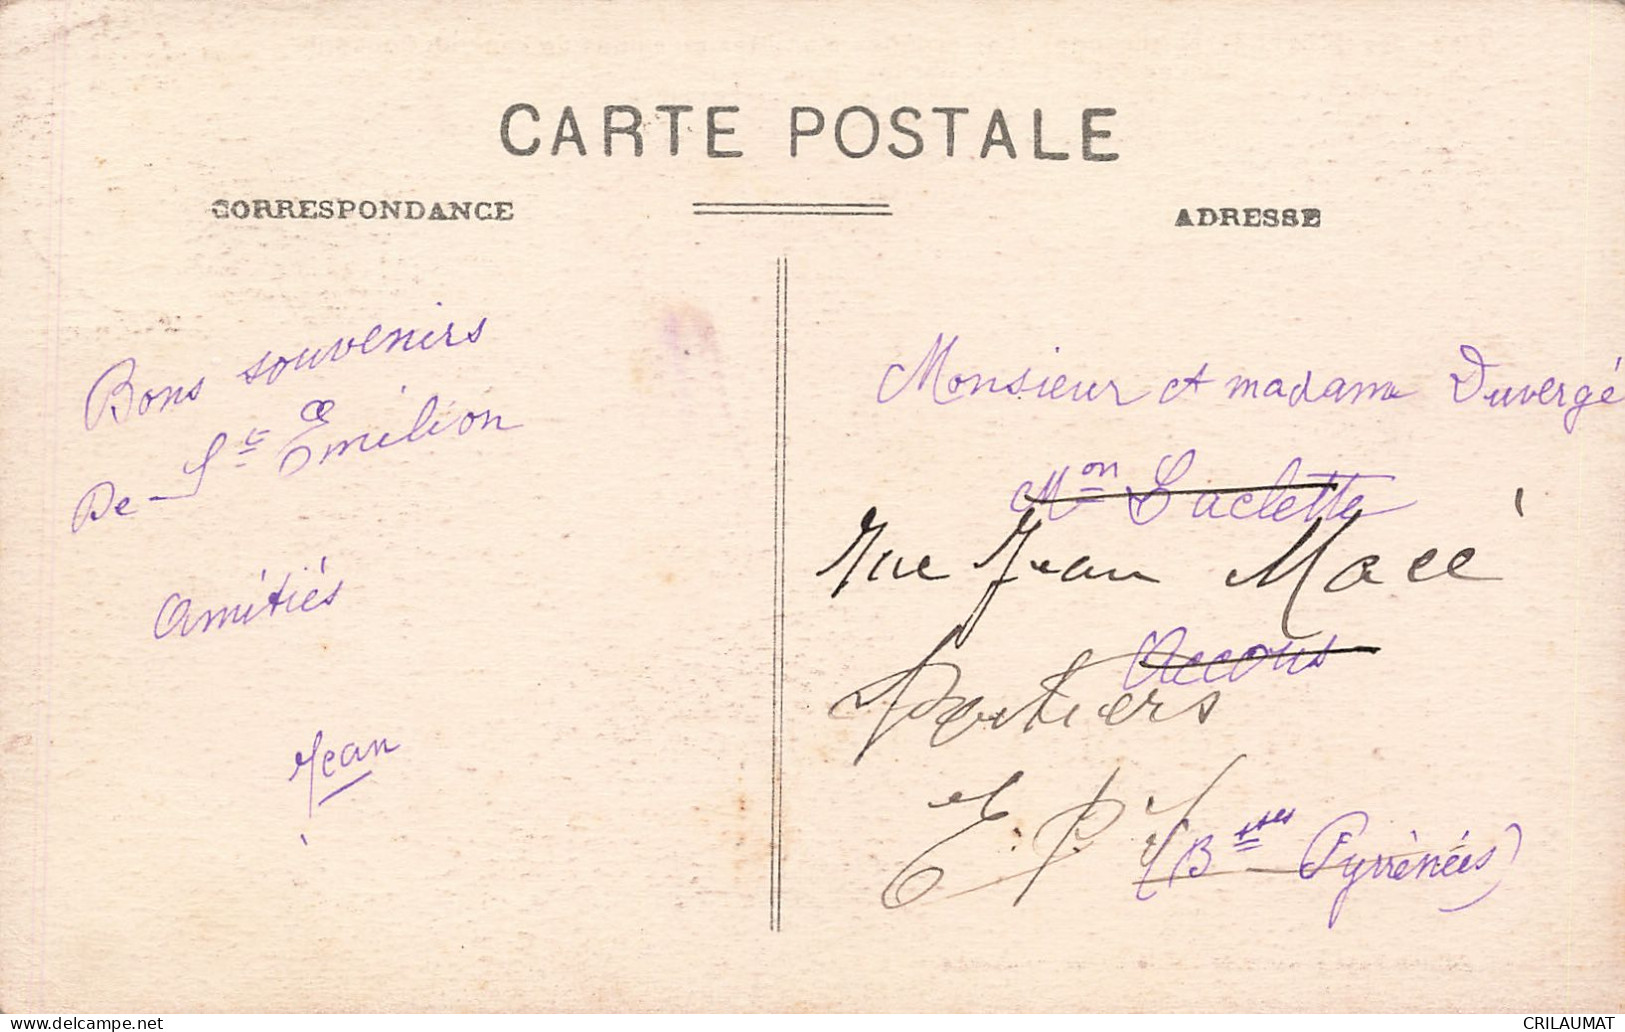 CARTE POSTALE
CORRESPONDANCE
ADRESSE
Bons souvenirs
De St Emilion
Amitiés
Jean
Monsieur et madame Duvergé
Mon Laclette
Rue Jean Macé
Accous
Poitiers
E. P.
(Bsses Pyrénées)
CRILAUMAT
delcampe.net